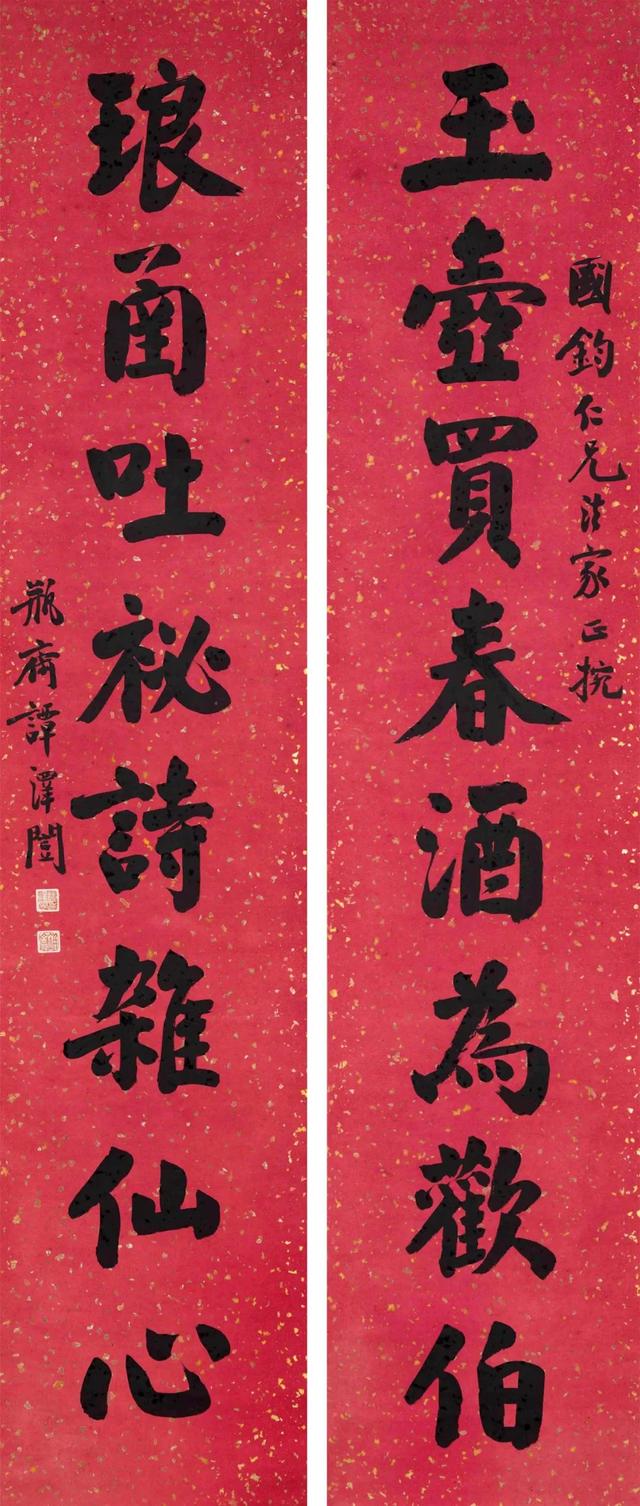 國鈞仁兄法家正捥
玉壺買春酒為歡伯
琅圅吐祕詩雜仙心
瓶齋譚澤闓